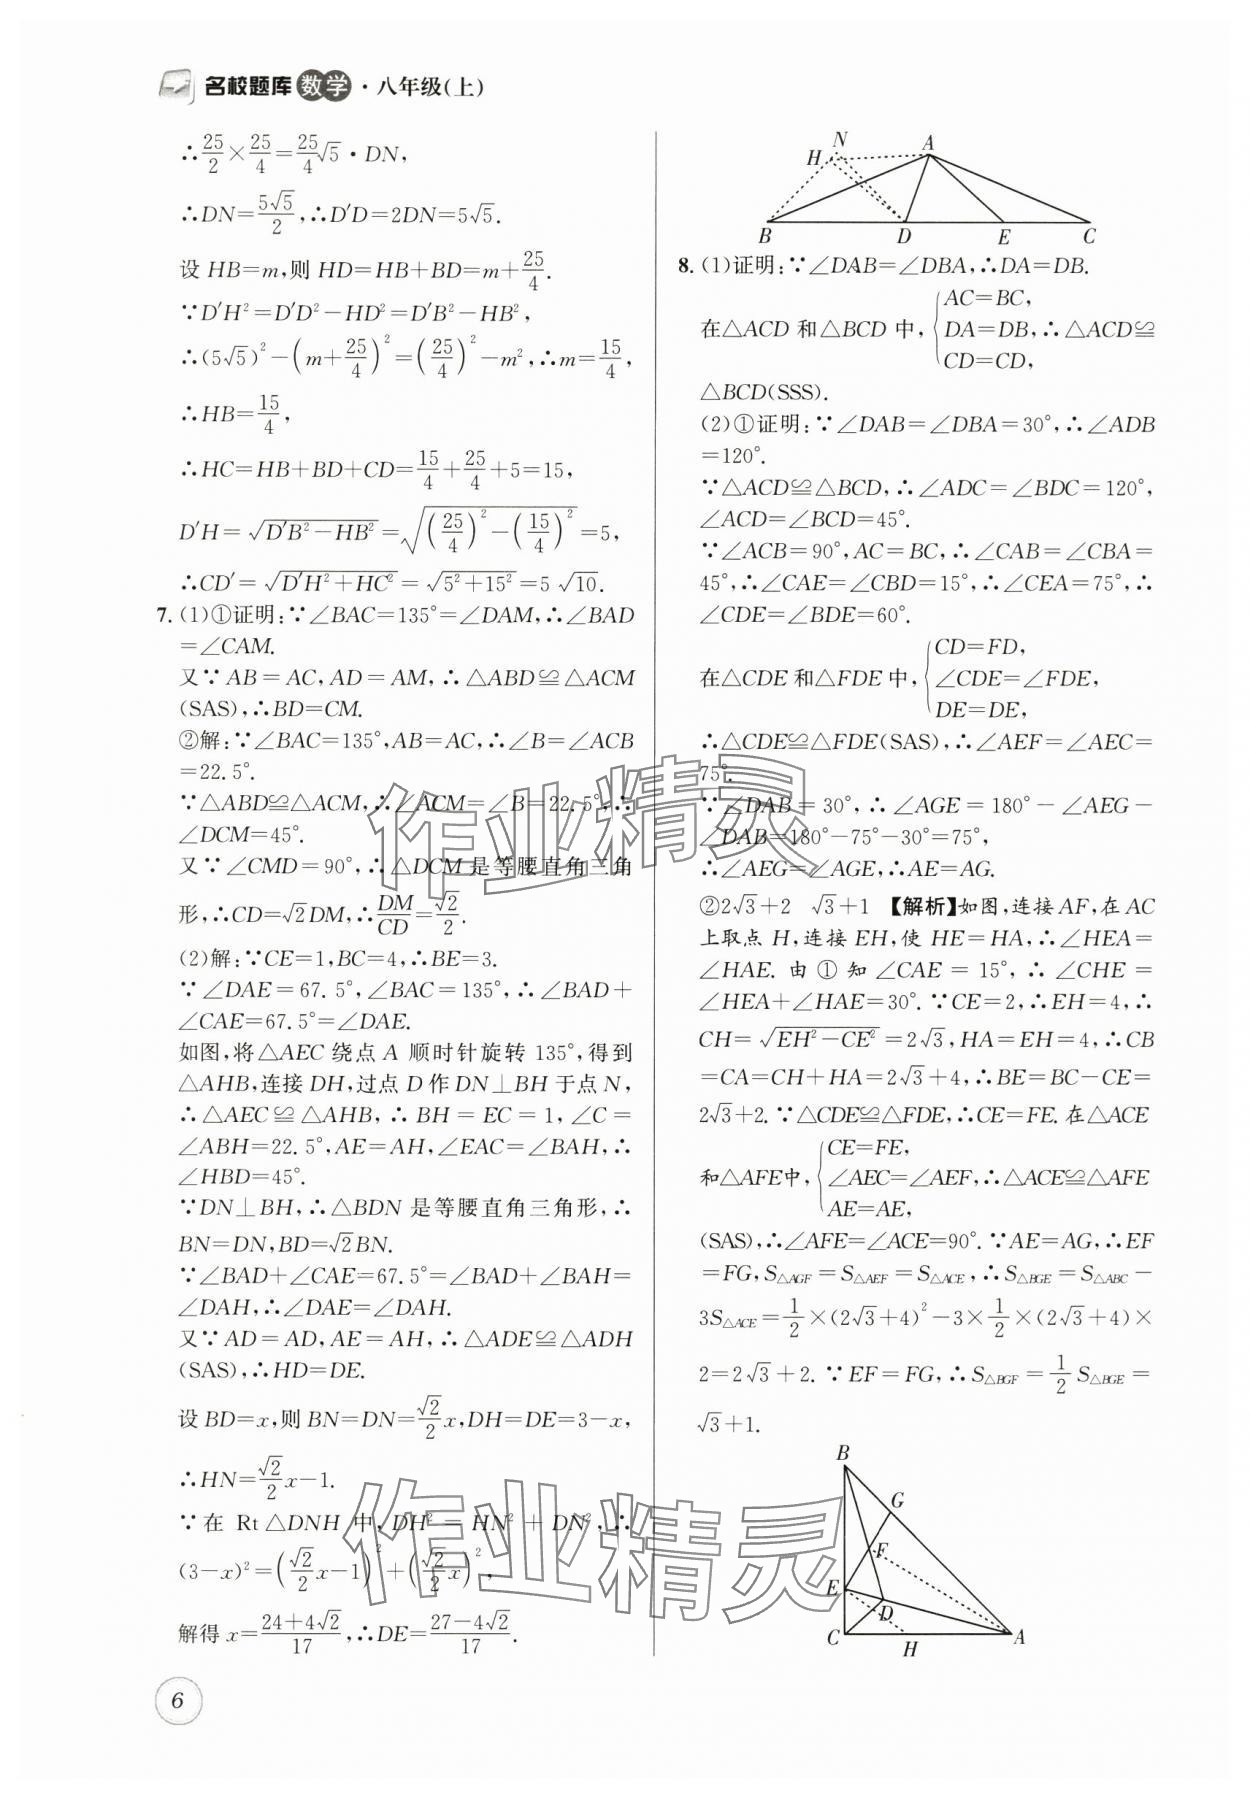 名校题库 数学·八年级(上)
∴25/2×25/4=25/4√5·DN,
∴DN=5√5/2,∴D′D=2DN=5√5.
设 HB=m,则 HD=HB+BD=m+25/4.
∵D′H²=D′D²-HD²=D′B²-HB²,
∴(5√5)²-(m+25/4)²=(25/4)²-m²,∴m=15/4,
∴HB=15/4,
∴HC=HB+BD+CD=15/4+25/4+5=15,
D′H=√(D′B²-HB²)=√((25/4)²-(15/4)²)=5,
∴CD′=√(D′H²+HC²)=√(5²+15²)=5√10.
7.(1)①证明:∵∠BAC=135°=∠DAM,∴∠BAD
=∠CAM.
又∵AB=AC,AD=AM,∴△ABD≌△ACM
(SAS),∴BD=CM.
②解:∵∠BAC=135°,AB=AC,∴∠B=∠ACB
=22.5°.
∵△ABD≌△ACM,∴∠ACM=∠B=22.5°,∴
∠DCM=45°.
又∵∠CMD=90°,∴△DCM是等腰直角三角
形,∴CD=√2DM,∴DM/CD=√2/2.
(2)解:∵CE=1,BC=4,∴BE=3.
∵∠DAE=67.5°,∠BAC=135°,∴∠BAD+
∠CAE=67.5°=∠DAE.
如图,将△AEC绕点A顺时针旋转135°,得到
△AHB,连接DH,过点D作DN⊥BH于点N,
∴△AEC≌△AHB,∴BH=EC=1,∠C=
∠ABH=22.5°,AE=AH,∠EAC=∠BAH,∴
∠HBD=45°.
∵DN⊥BH,∴△BDN是等腰直角三角形,∴
BN=DN,BD=√2BN.
∵∠BAD+∠CAE=67.5°=∠BAD+∠BAH=
∠DAH,∴∠DAE=∠DAH.
又∵AD=AD,AE=AH,∴△ADE≌△ADH
(SAS),∴HD=DE.
设BD=x,则BN=DN=√2/2x,DH=DE=3-x,
∴HN=√2/2x-1.
∵在Rt△DNH中,DH²=HN²+DN²,∴
(3-x)²=(√2/2x-1)²+(√2/2x)²,
解得x=(24+4√2)/17,∴DE=(27-4√2)/17.
6
N
H
A
B D E C
8.(1)证明:∵∠DAB=∠DBA,∴DA=DB.
在△ACD和△BCD中,{AC=BC,
DA=DB,∴△ACD≌
CD=CD,
△BCD(SSS).
(2)①证明:∵∠DAB=∠DBA=30°,∴∠ADB
=120°.
∵△ACD≌△BCD,∴∠ADC=∠BDC=120°,
∠ACD=∠BCD=45°.
∵∠ACB=90°,AC=BC,∴∠CAB=∠CBA=
45°,∴∠CAE=∠CBD=15°,∴∠CEA=75°,
∠CDE=∠BDE=60°.
在△CDE和△FDE中,{CD=FD,
∠CDE=∠FDE,
DE=DE,
∴△CDE≌△FDE(SAS),∴∠AEF=∠AEC=
75°.
∵∠DAB=30°,∴∠AGE=180°-∠AEG-
∠DAB=180°-75°-30°=75°,
∴∠AEG=∠AGE,∴AE=AG.
②2√3+2 √3+1 【解析】如图,连接AF,在AC
上取点H,连接EH,使HE=HA,∴∠HEA=
∠HAE.由①知∠CAE=15°,∴∠CHE=
∠HEA+∠HAE=30°.∵CE=2,∴EH=4,∴
CH=√(EH²-CE²)=2√3,HA=EH=4,∴CB
=CA=CH+HA=2√3+4,∴BE=BC-CE=
2√3+2.∵△CDE≌△FDE,∴CE=FE.在△ACE
和△AFE中,{CE=FE,
∠AEC=∠AEF,∴△ACE≌△AFE
AE=AE,
(SAS),∴∠AFE=∠ACE=90°.∵AE=AG,∴EF
=FG,S△AGF=S△AEF=S△ACE,∴S△BGE=S△ABC-
3S△ACE=1/2×(2√3+4)²-3×1/2×(2√3+4)×
2=2√3+2.∵EF=FG,∴S△BGF=1/2S△BGE=
√3+1.
B
G
F
E
D
C H A
作业精灵
作业精灵